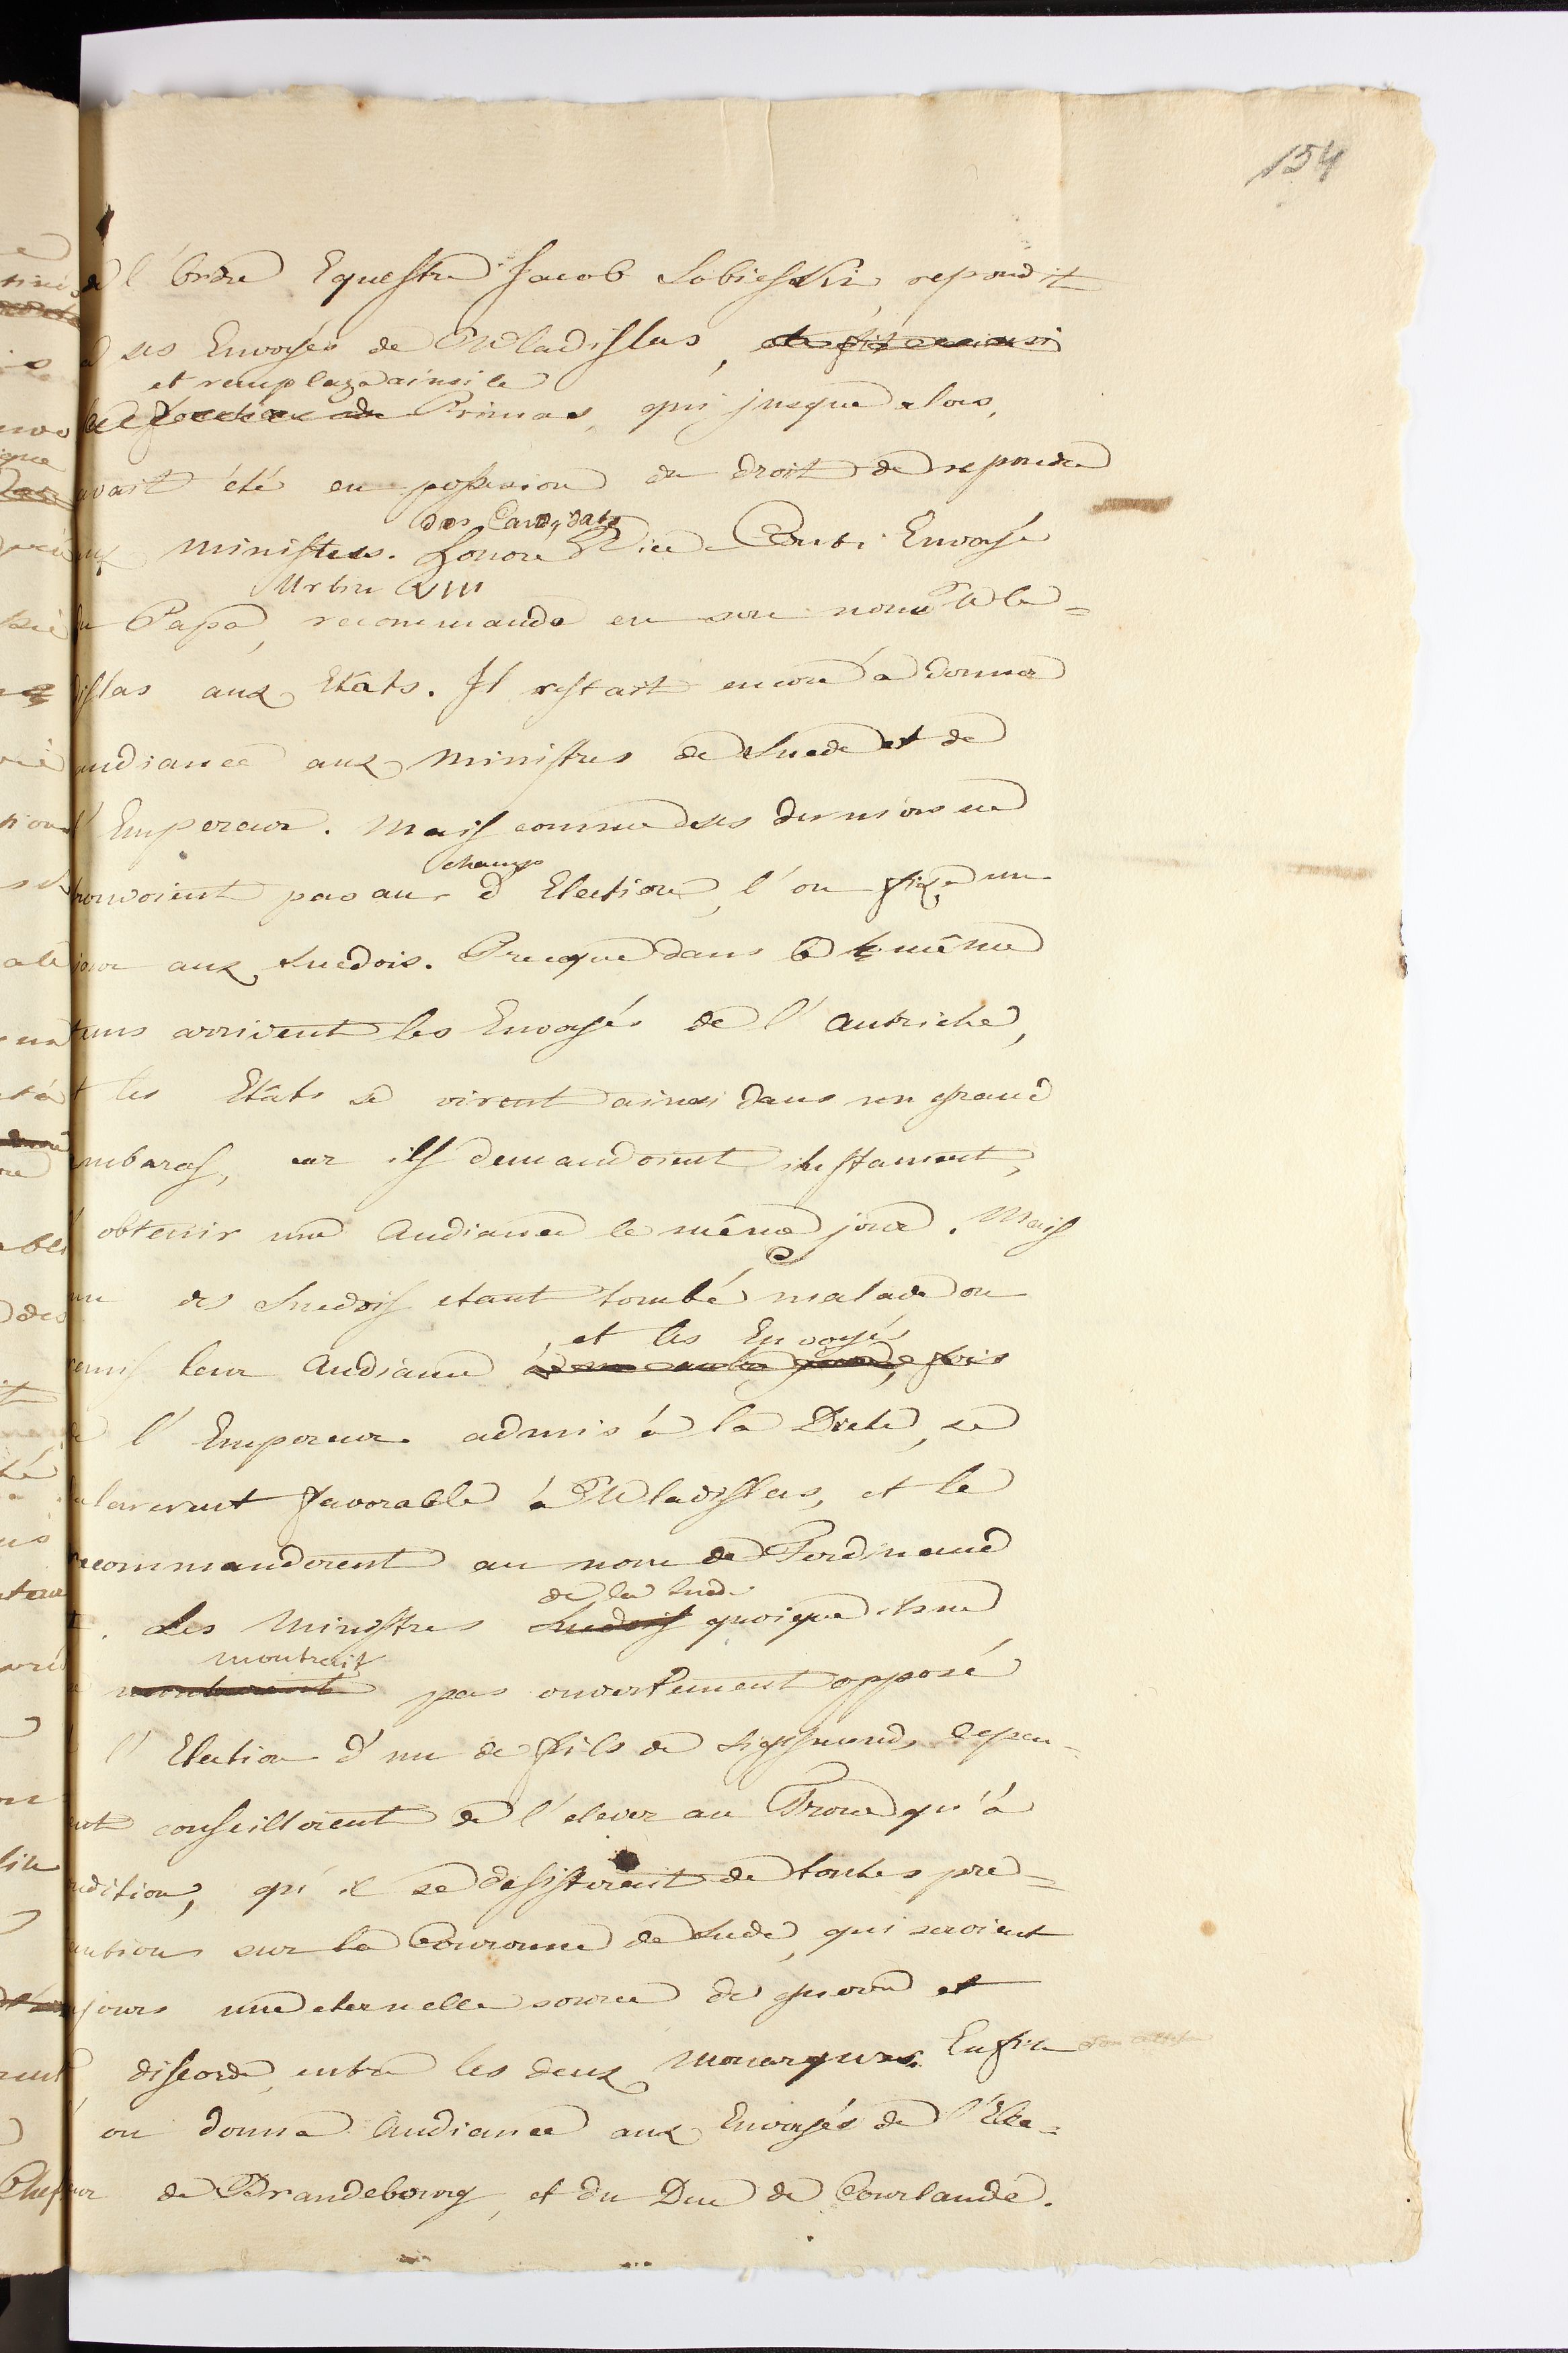 154
de l'Ordre Equestre Jacob Sobiesski, repondit
à ses Envoyés de Wladislas,
et remplaça ainsi le
Primas, qui jusque alors,
avait été en possession du droit de repondre
des Candidats
aux Ministres. Honoré Vice Conti Envoyé
Urbin VIII
du Pape, recommanda en son nom Wla=
dislas aux Etâts. Il restait encore à donner
audiance aux Ministres de Suede et de
l'Empereur. Mais comme ses derniers ne
champ
trouvoient pas au d'Election, l'on fixa un
jour aux Suedois. Presque dans le même
tems arrivent les Envoyés de l'Autriche,
et les Etâts se virent ainsi dans un grand
embaras, car ils demandoient instament,
d'obtenir une Audiance le même jour. Mais
un des Suedois etant tombé malade on
et les Envoyés
remis leur Audiance
de l'Empereur admis à la Diete, se
declarerent favorable à Wladislas, et le
recommanderent au nom de Ferdinand
de la Suede
Les Ministres Suedois quoique ils ne
montrait
pas ouvertement opposé
à l'Election d'un de fils de Sigismund, cepen=
dant conseilloient de l'elever au Trone qu'à
condition, qu'il se desisterait de toutes pre=
tentions sur la Couronne de Suede, qui seroient
toujours une eternelle source de guerre et
discorde, entre les deux Monarques. Enfin
on donna Audiance aux Envoyés de l'Elec=
teur de Brandebourg, et du Duc de Courlande.